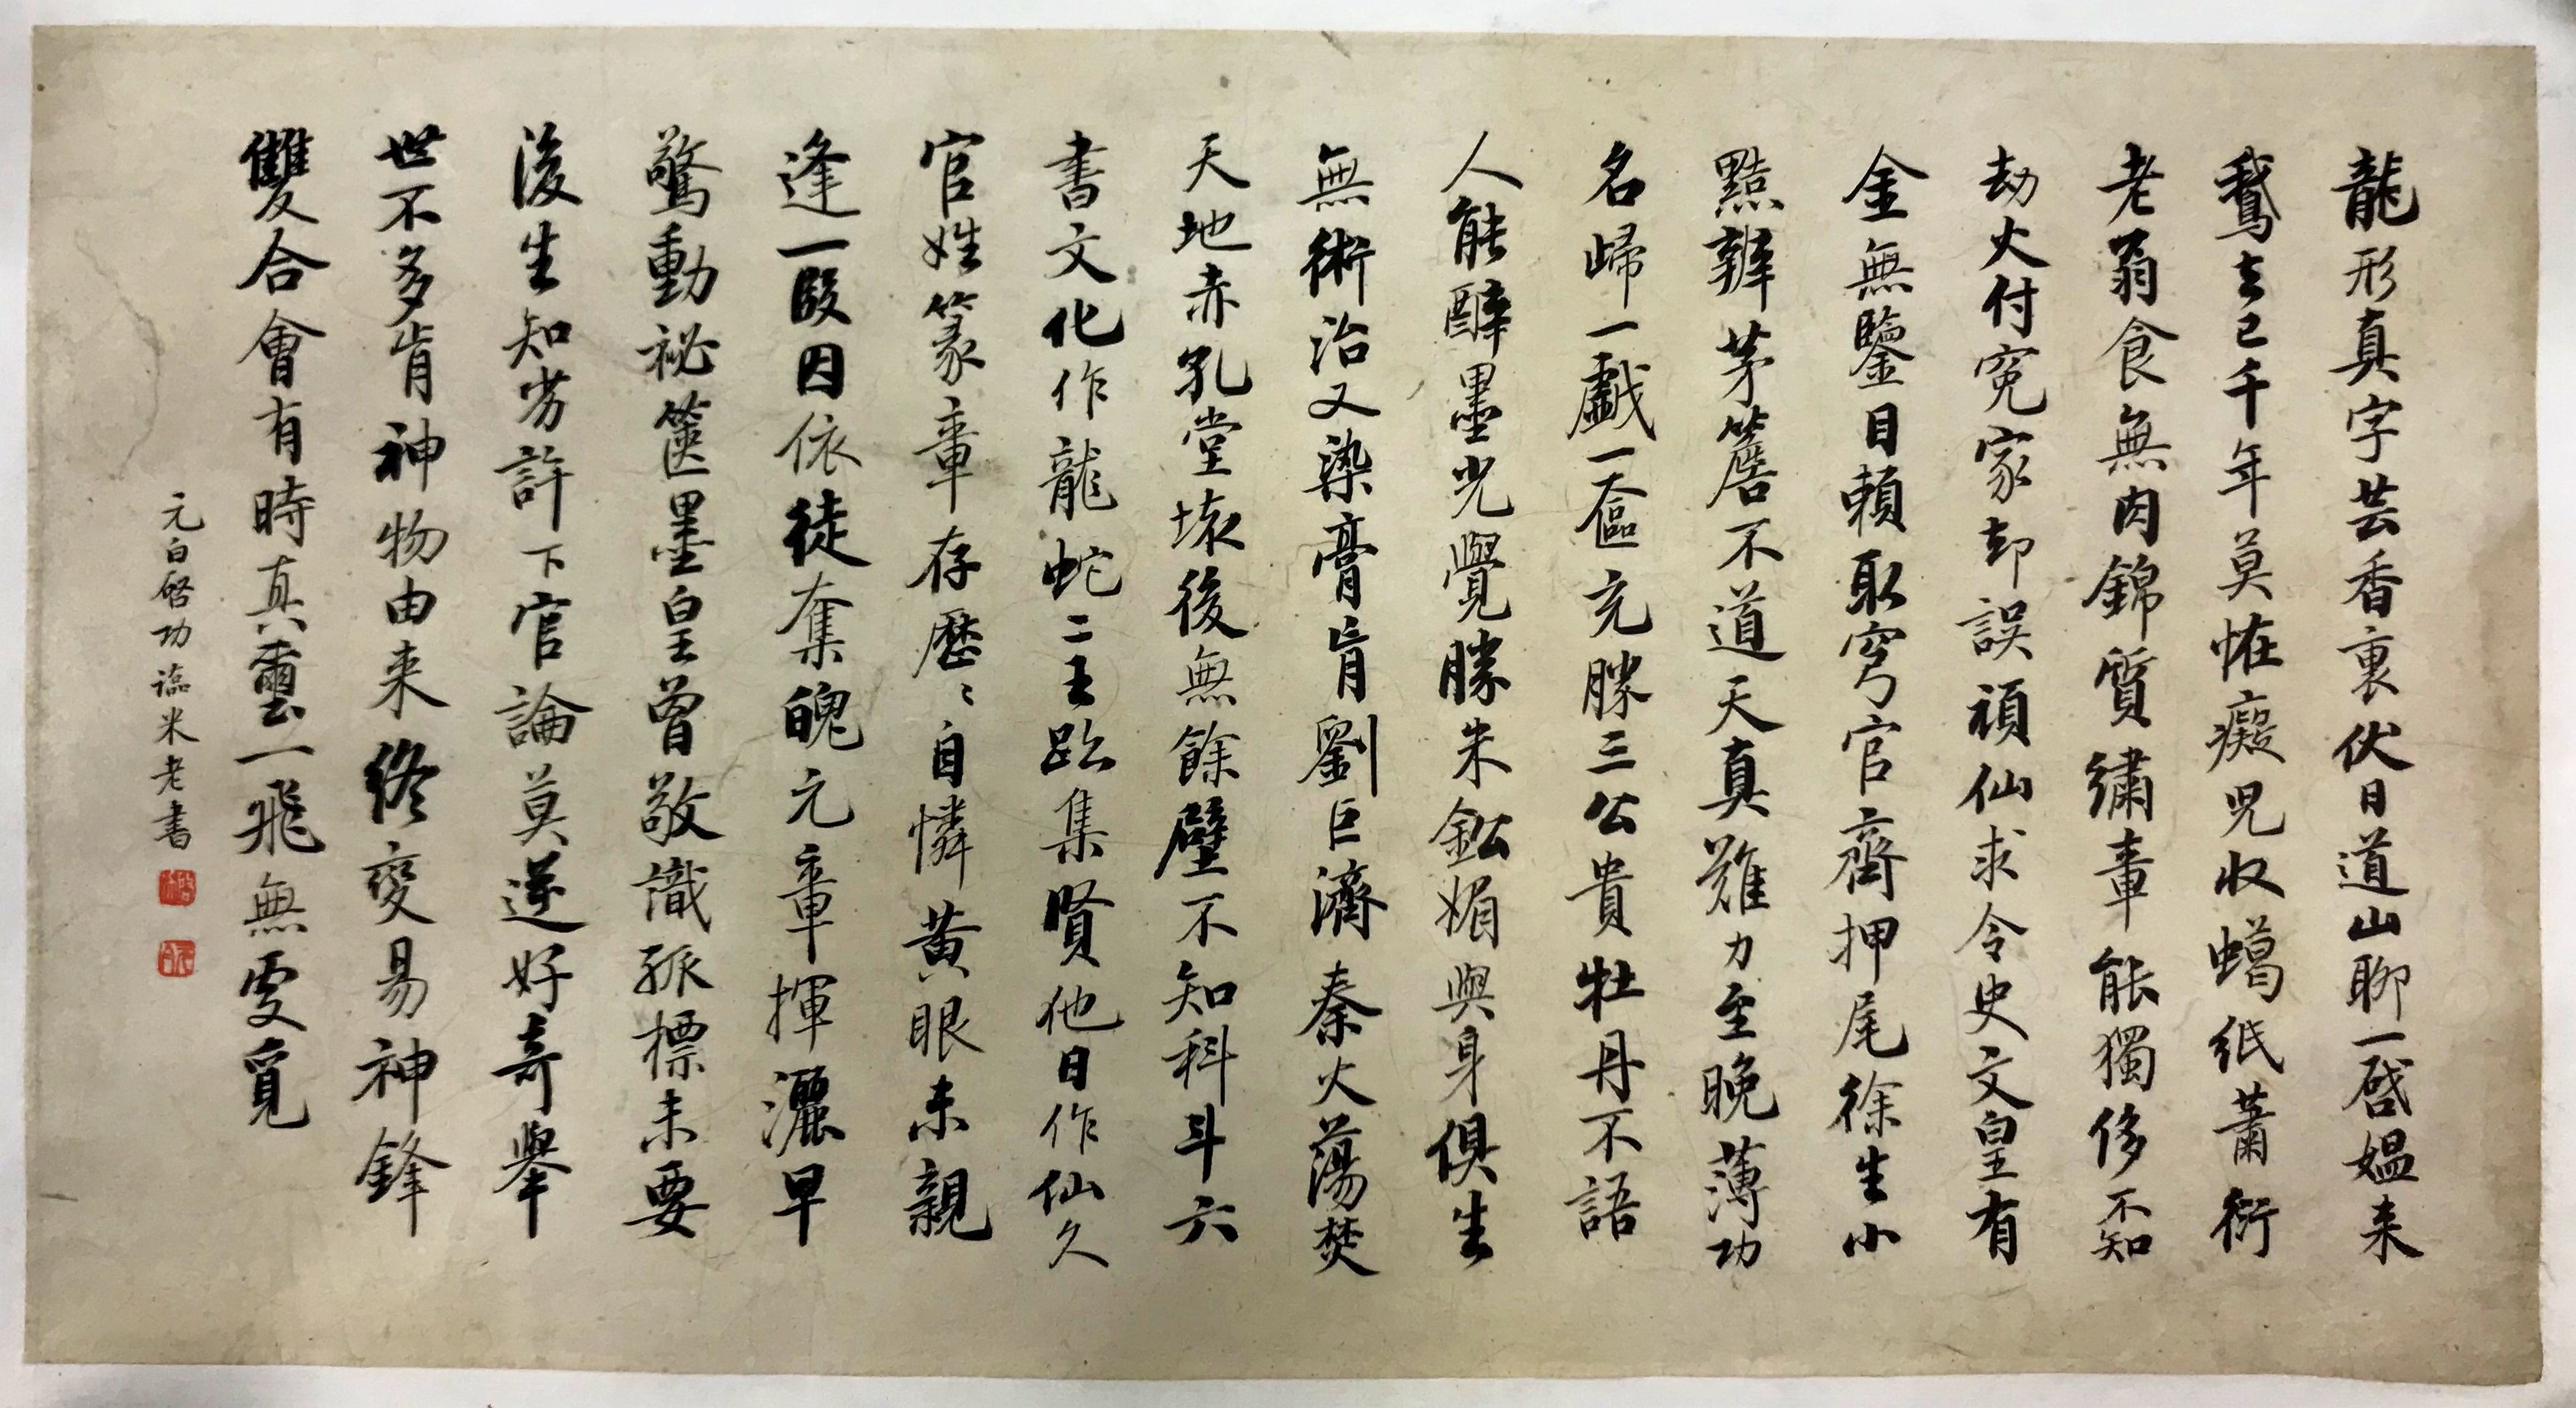 龍形真字芸香裏伏日道山聊一啓媼来
鵞去已千年莫恠癡児收蝎紙蕭衍
老翁食無肉錦質繡章能獨侈不知
劫火付冤家却誤須仙求令史文皇有
金無鑒目頼取穹官齊押尾徐生小
黠辨茅簷不道天真難力至晚薄功
名歸一戲一奩充勝三公貴牡丹不語
人能醉墨光覺勝朱鉛媚與身俱生
無術治又染膏肓劉巨濟秦火蕩焚
天地赤孔堂壊後無餘壁不知科斗六
書文化作龍蛇二王跡集賢他日作仙久
官姓篆章存歷〻自憐黄眼未親
逢一段因依徒奪魄元章揮灑早
驚動祕篋墨皇曾敬識孤標未要
後生知労許下官論莫逆好奇舉
世不多肯神物由来終變易神鋒
雙合會有時真璽一飛無處覓
元白啓功臨米老書